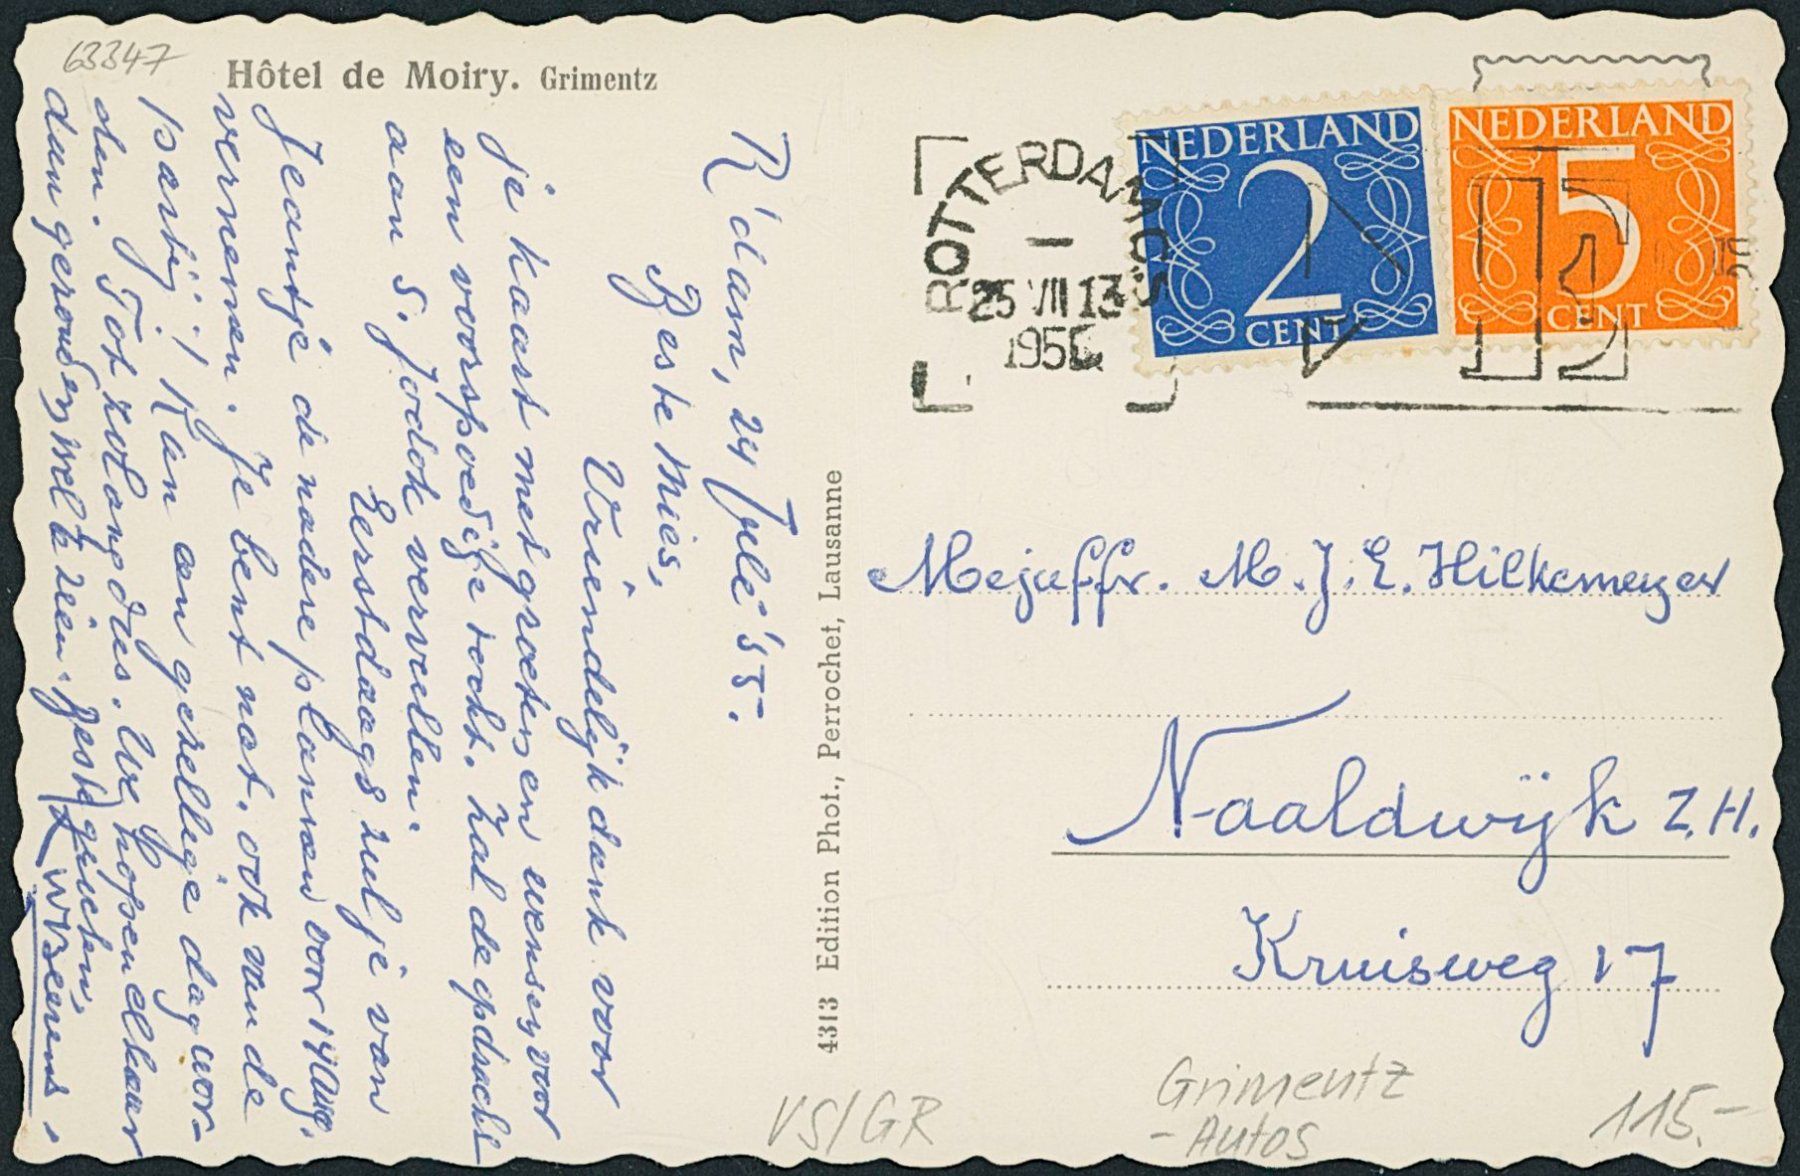 63347
Hôtel de Moiry. Grimentz
R'dam, 24 Juli '55.
Beste Mies,
Vriendelijk dank voor
je kaart met groeten en wensen voor
een voorspoedige tocht. Zal de opdracht
aan S. Jodok vervullen.
Eerstdaags zul je van
Jeantje de nadere plannen voor 14 Aug.
vernemen. Je bent nat. ook van de
partij! Kan een gezellige dag wor-
den. Tot zolang dies. We hopen elkaar
dan gezond en wel te zien. Beste groeten,
4313 Edition Phot., Perrochet, Lausanne
ROTTERDAM
25 VII 13
195
NEDERLAND
2
CENT
NEDERLAND
5
CENT
Mejuffr. M. J. E. Hilkemeyer
Naaldwijk Z.H.
Kruisweg 17
VS/GR
Grimentz
- Autos
115.-